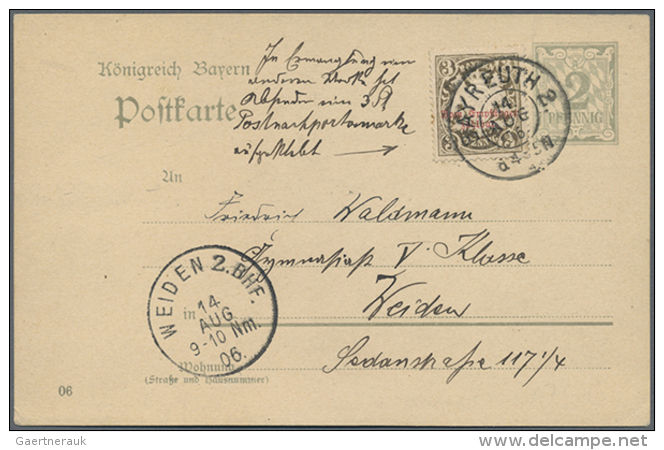 Königreich Bayern
Postkarte
In Ermanglung von
anderen Marke hat
Absender eine 3 Pf
Postnachportomarke
aufgeklebt
3 3
BAYREUTH 2
14
AUG
2
PFENNIG
An
Friedrich Waldmann
Gymnasiast V. Klasse
in Weiden
WEIDEN 2. BHF.
14.
AUG.
9-10 Nm.
06.
Wohnung
Sedanstraße 117 1/4
(Straße und Hausnummer)
06
Gaertnerauk
delcampe.net